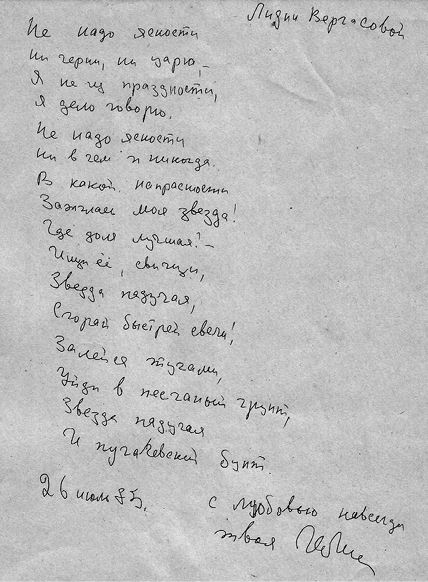 Лидии Вергасовой
Не надо ясности
ни черни, ни царю, –
Я не из праздности,
я дело говорю.
Не надо ясности
ни в чем и никогда.
В какой напрасности
Зажглась моя звезда!
Где доля лучшая? –
Ищи её, свищи,
Звезда падучая,
Сгорай быстрей свечи!,
Залейся тучами,
Уйди в песчаный грунт,
Звезда падучая
И пугачевский бунт.
26 июля 85.
с любовью навсегда
твоя